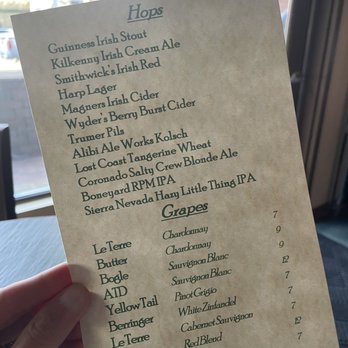 Hops
Guinness Irish Stout
Kilkenny Irish Cream Ale
Smithwick's Irish Red
Harp Lager
Magners Irish Cider
Wyder's Berry Burst Cider
Trumer Pils
Alibi Ale Works Kolsch
Lost Coast Tangerine Wheat
Coronado Salty Crew Blonde Ale
Boneyard RPM IPA
Sierra Nevada Hazy Little Thing IPA
Grapes
Le Terre Chardonnay 7
Butter Chardonnay 9
Bogle Sauvignon Blanc 9
ATD Sauvignon Blanc 12
Yellow Tail Pinot Grigio 7
Berringer White Zinfandel 7
Le Terre Cabernet Sauvignon 7
Red Blend 12
7